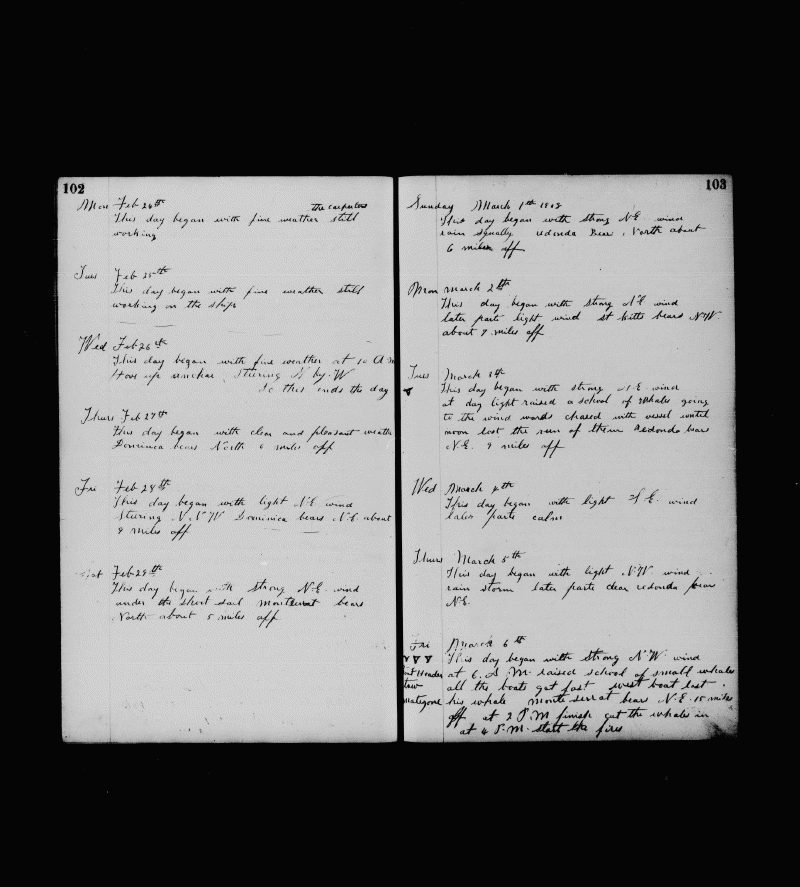 102
Mon Feb 24th
the carpenters
This day began with fine weather still
working
Tues Feb 25th
This day began with fine weather still
working on the ship
Wed Feb 26th
This day began with fine weather at 10 A M
Hove up anchor Steering N by W
So this ends the day
Thurs Feb 27th
This day began with clear and pleasant weathe
Dominica bears North 6 miles off
Fri Feb 28th
This day began with light N.E. wind
Steering N N W Dominica bears N.E. about
9 miles off
Sat Feb 29th
This day began with strong N.E. wind
under the short sail Montserrat bears
North about 5 miles off
103
Sunday March 1th
This day began with strong N.E. wind
rain squally redonda Bear North about
6 miles off
Mon march 2th
This day began with strong N.E wind
later parts light wind St Kitts bears N.W.
about 9 miles off
Tues March 3th
This day began with strong N.E. wind
at day light raised a school of whales going
to the wind wards chased with vessel until
noon lost the run of them Redonda bear
N.E. 9 miles off
Wed March 4th
This day began with light wind
later parts calm
Thurs March 5th
This day began with light N.W. wind
rain storm later parts clear redonda bear
N.E.
Fri March 6th
This day began with strong N.W. wind
at 6. A M. raised school of small whales
all the boats got fast boat lost
his whale montserrat bear N.E. 15 miles
off at 2 P.M finish got the whales in
at 4 P.M. start the fires